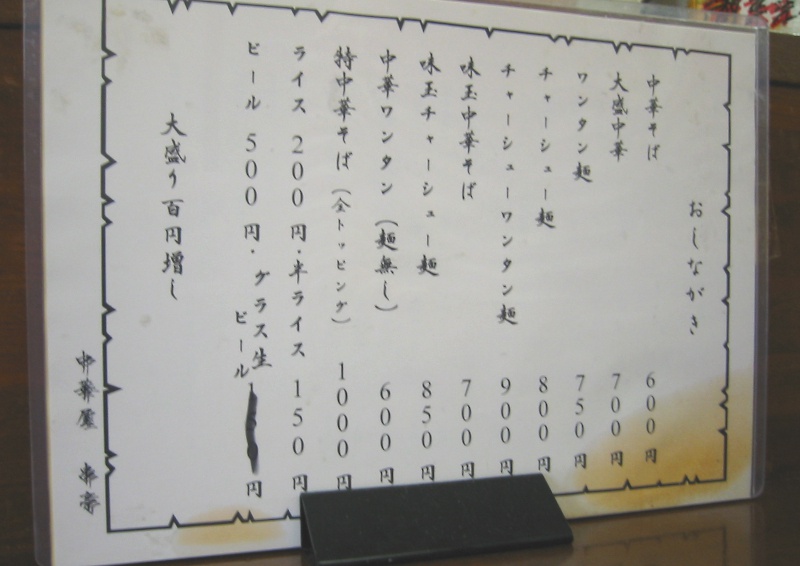 おしながき
中華そば 600円
大盛中華 700円
ワンタン麺 750円
チャーシュー麺 800円
チャーシューワンタン麺 900円
味玉中華そば 700円
味玉チャーシュー麺 850円
中華ワンタン(麺無し) 600円
特中華そば(全トッピング) 1000円
ライス 200円・半ライス 150円
ビール 500円・グラス生ビール 円
大盛り百円増し
中華屋